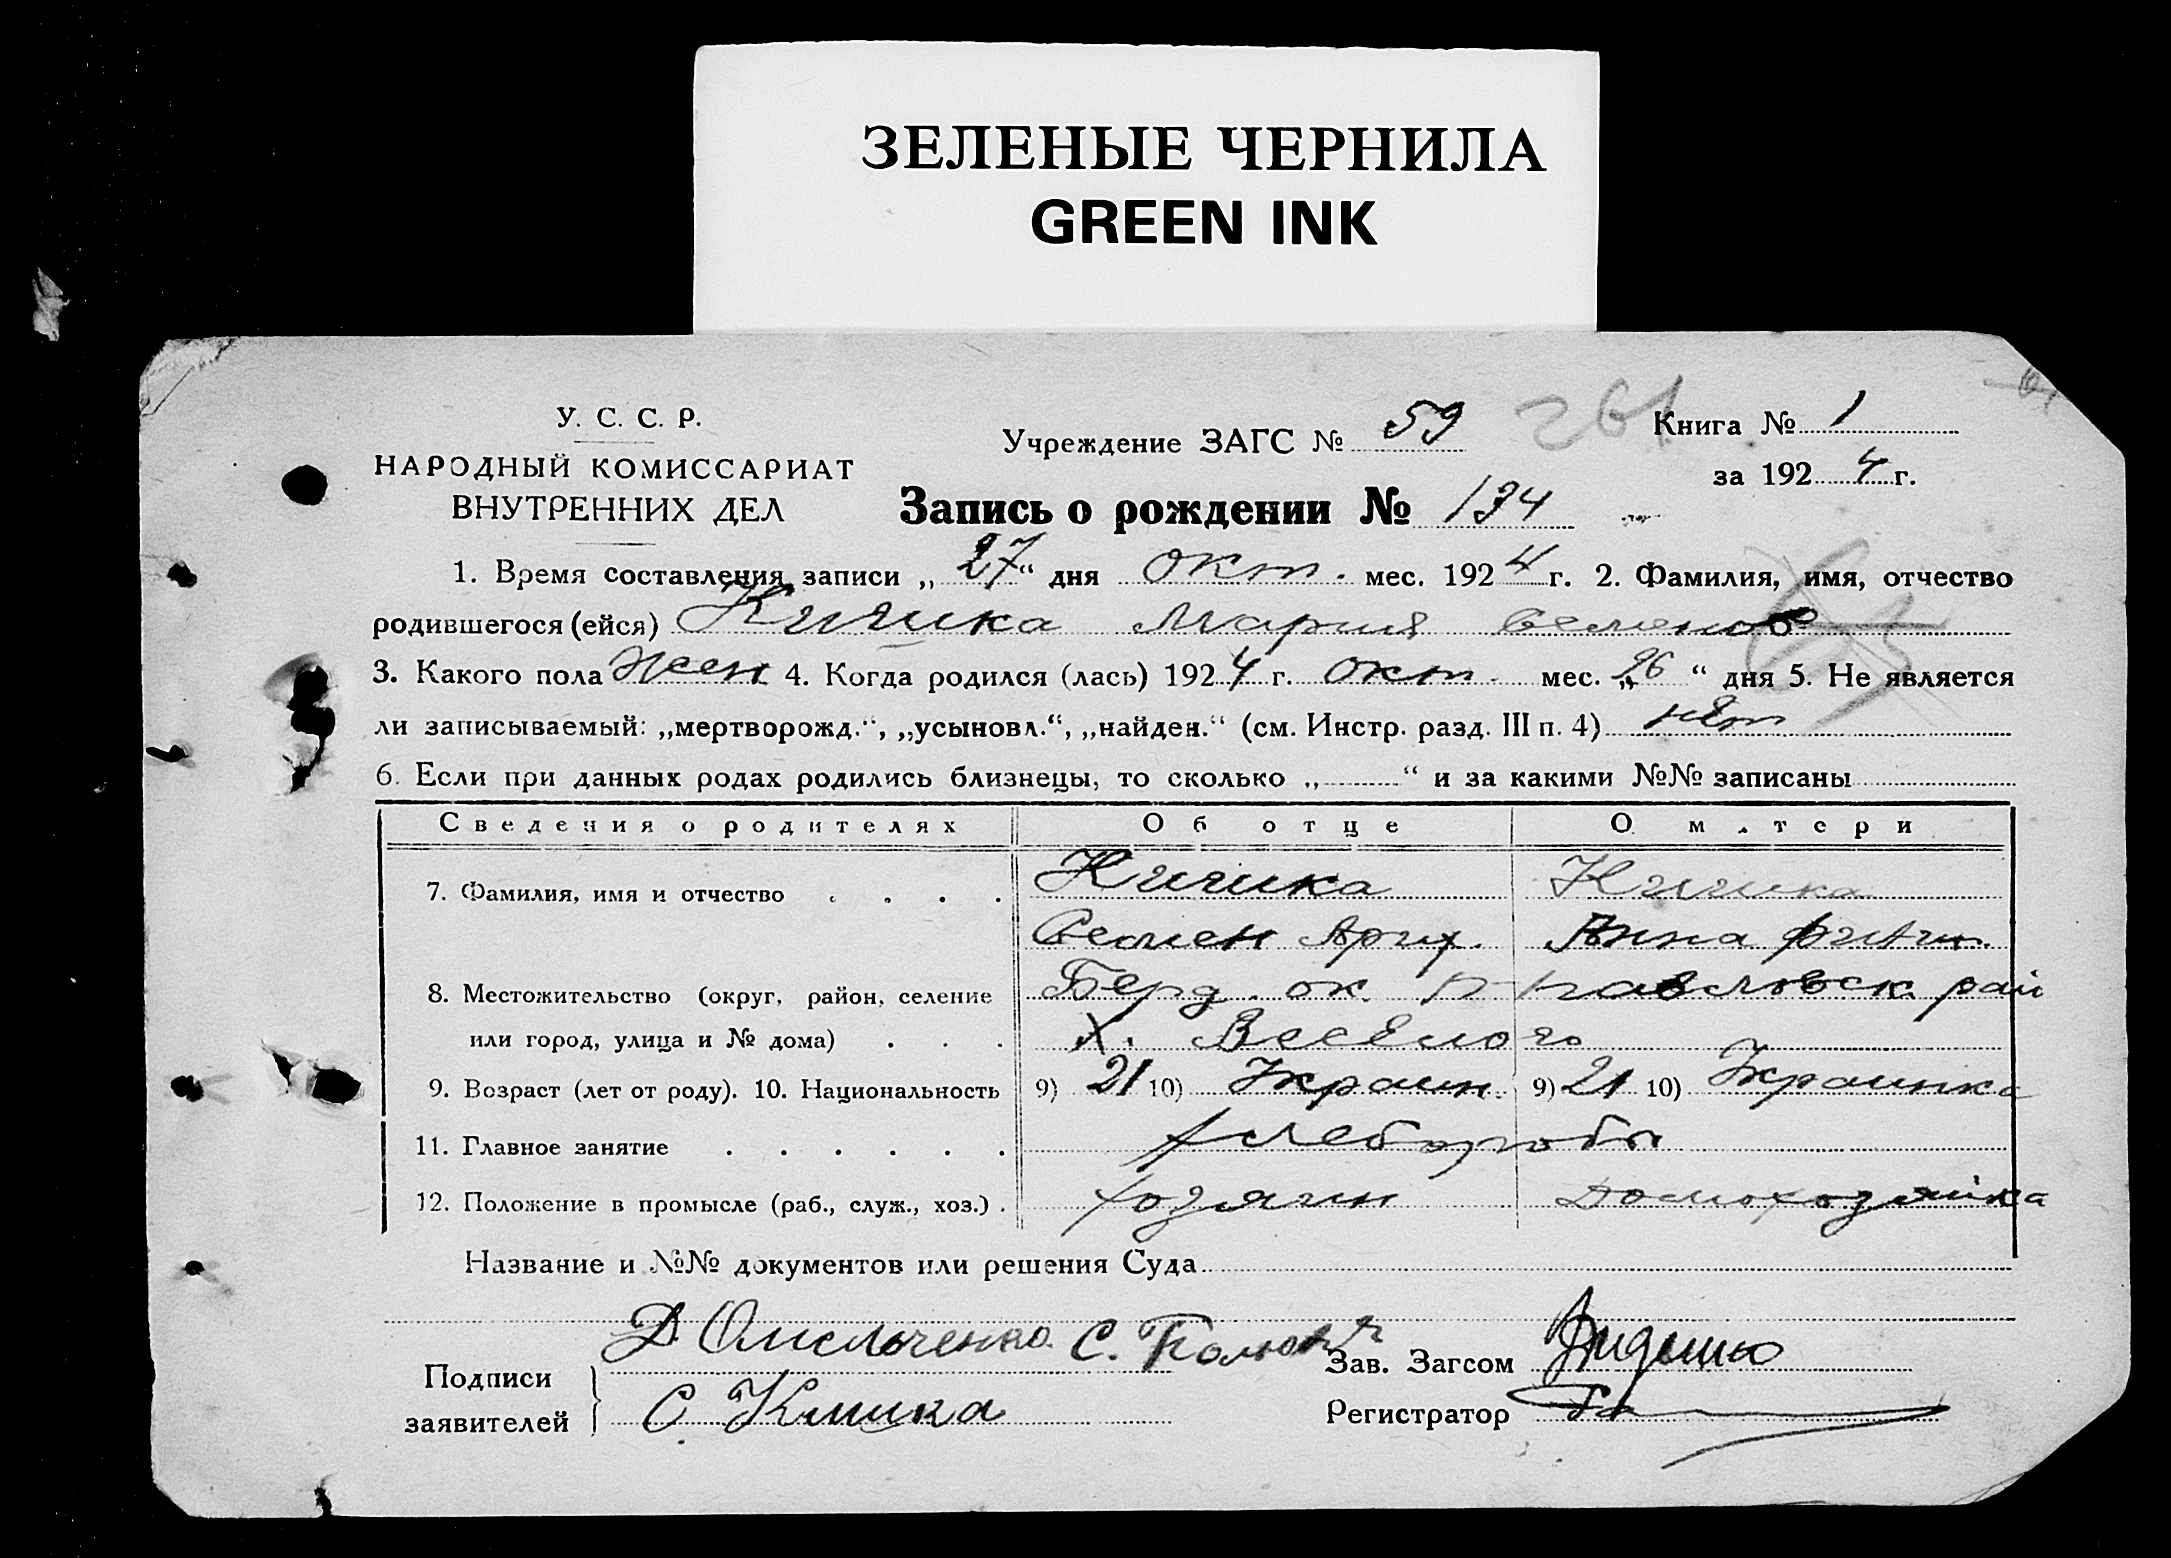 ЗЕЛЕНЫЕ ЧЕРНИЛА
GREEN INK
У. С. С. Р.
НАРОДНЫЙ КОМИССАРИАТ
ВНУТРЕННИХ ДЕЛ
Учреждение ЗАГС № 59
261
Книга № 1
за 1924 г.
Запись о рождении № 134
1. Время составления записи „27“ дня окт. мес. 1924 г. 2. Фамилия, имя, отчество
родившегося (ейся) Кичика Мария Семенов
3. Какого пола жен 4. Когда родился (лась) 1924 г. окт. мес. „26“ дня 5. Не является
ли записываемый: „мертворожд.“, „усыновл.“, „найден.“ (см. Инстр. разд. III п. 4) нет
6. Если при данных родах родились близнецы, то сколько „ “ и за какими №№ записаны
Сведения о родителях Об отце О матери
7. Фамилия, имя и отчество Кичика Кичика
Семен Арих. Анна
8. Местожительство (округ, район, селение Берд. ок. Н-Павловск. рай
или город, улица и № дома) х. Веселого
9. Возраст (лет от роду). 10. Национальность 9) 21 10) Украин. 9) 21 10) Украинка
11. Главное занятие хлеборобы
12. Положение в промысле (раб., служ., хоз.) хозяин Домохозяйка
Название и №№ документов или решения Суда
Д. Омельченко. С.
Подписи
заявителей
С. Кичика
Зав. Загсом Диденко
Регистратор